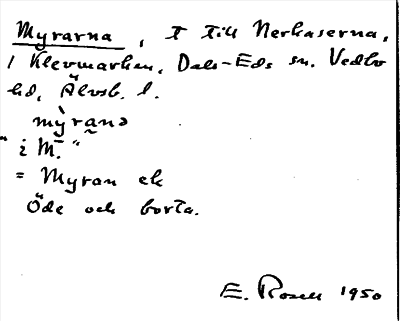 Myrarna, T till Nerkaserna,
1 Klevmarken, Dals-Eds sn. Vedbo
hd, Älvsb. l.
mỳrana
"i M."
= Myran ek
Öde och borta.
E. Rosell 1950